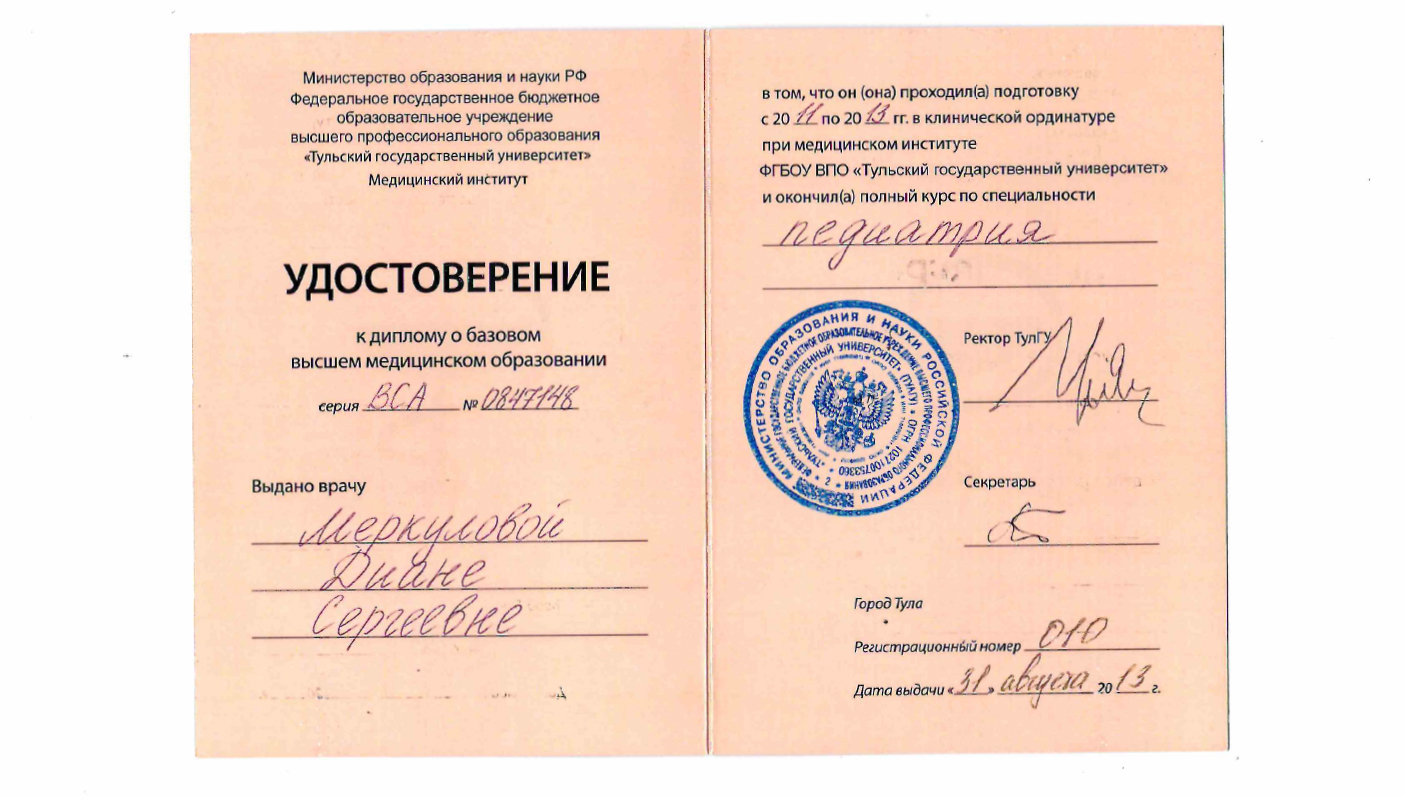 Министерство образования и науки РФ
Федеральное государственное бюджетное
образовательное учреждение
высшего профессионального образования
«Тульский государственный университет»
Медицинский институт
УДОСТОВЕРЕНИЕ
к диплому о базовом
высшем медицинском образовании
серия ВСА № 0847148
Выдано врачу
Меркуловой
Диане
Сергеевне
в том, что он (она) проходил(а) подготовку
с 20 11 по 20 13 гг. в клинической ординатуре
при медицинском институте
ФГБОУ ВПО «Тульский государственный университет»
и окончил(а) полный курс по специальности
педиатрия
МИНИСТЕРСТВО ОБРАЗОВАНИЯ И НАУКИ РОССИЙСКОЙ ФЕДЕРАЦИИ
ФЕДЕРАЛЬНОЕ ГОСУДАРСТВЕННОЕ БЮДЖЕТНОЕ ОБРАЗОВАТЕЛЬНОЕ УЧРЕЖДЕНИЕ ВЫСШЕГО ПРОФЕССИОНАЛЬНОГО ОБРАЗОВАНИЯ * 2 *
"ТУЛЬСКИЙ ГОСУДАРСТВЕННЫЙ УНИВЕРСИТЕТ" (ТУЛГУ) * ОГРН 1027100753360 *
Ректор ТулГУ
Секретарь
Город Тула
Регистрационный номер 010
Дата выдачи «31» августа 2013 г.